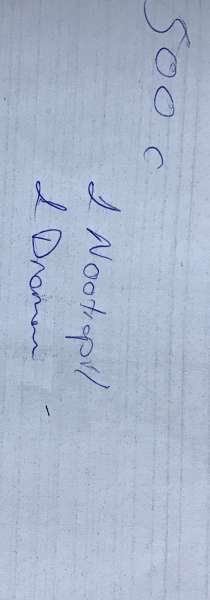 500 c
1 Nootropil
1 Dramen